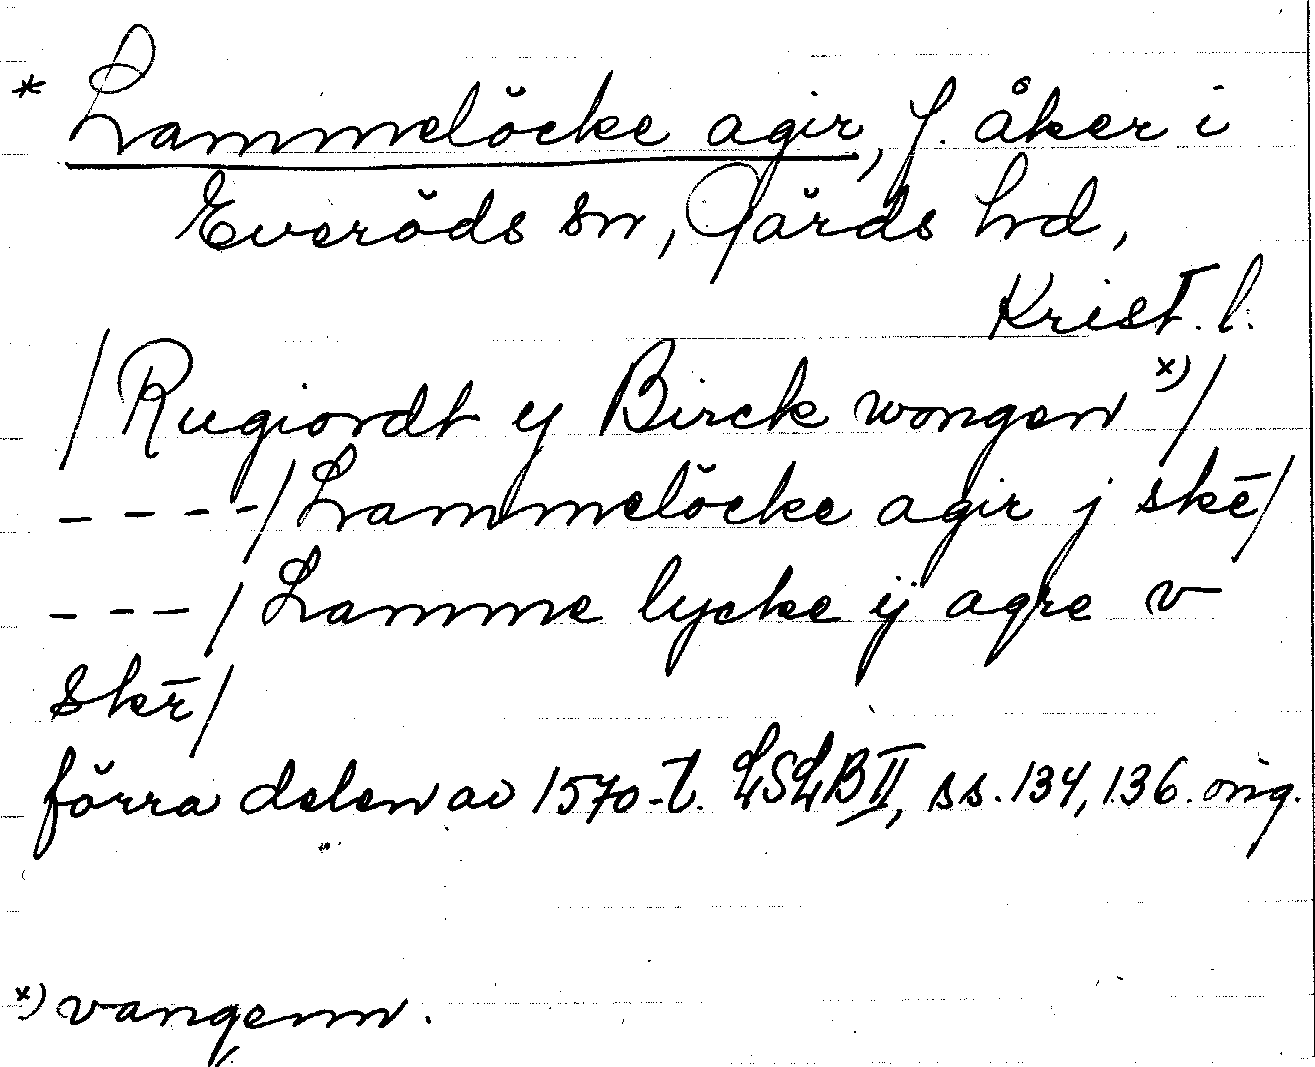 * Lammelöcke agir, f. åker i
Everöds sn, Gärds hd,
Krist. l.
/Rugiordt ij Birck wongen x)/
- - - -/Lammelöcke agir j skē/
- - -/Lamme lycke ij agre v
skē/
förra delen av 1570-t. LSLB II, ss. 134, 136. orig.
x) vangenn.